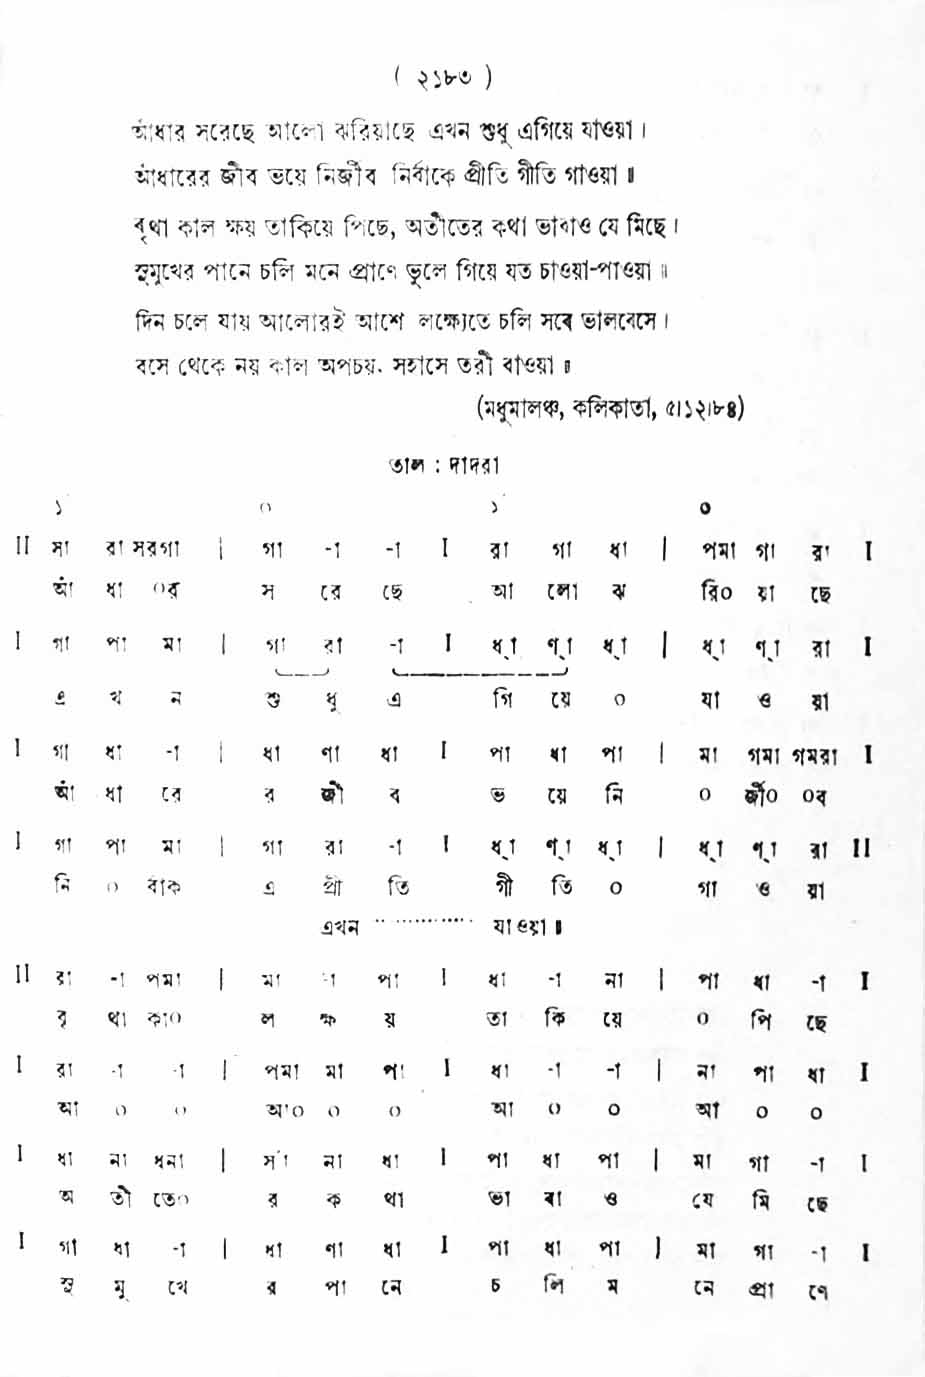 ( ২১৮৩ )
আঁধার সরেছে আলো ঝরিয়াছে এখন শুধু এগিয়ে যাওয়া।
আঁধারের জীব ভয়ে নির্জীব নির্বাকে প্রীতি গীতি গাওয়া॥
বৃথা কাল ক্ষয় তাকিয়ে পিছে, অতীতের কথা ভাবাও যে মিছে।
সুমুখের পানে চলি মনে প্রাণে ভুলে গিয়ে যত চাওয়া-পাওয়া॥
দিন চলে যায় আলোরই আশে লক্ষ্যেতে চলি সবে ভালবেসে।
বসে থেকে নয় কাল অপচয়. সহাসে তরী বাওয়া॥
(মধুমালঞ্চ, কলিকাতা, ৫।১২।৮৪)
তাল : দাদরা
১ ০ ১ ০
II সা রা সরগা | গা -া -া I রা গা ধা | পমা গা রা I
আঁ ধা ০র স রে ছে আ লো ঝ রি০ য়া ছে
I গা পা মা | গা রা -া I ধ্া ণ্া ধ্া | ধ্া ণ্া রা I
এ খ ন শু ধু এ গি য়ে ০ যা ও য়া
I গা ধা -া | ধা ণা ধা I পা ধা পা | মা গমা গমরা I
আঁ ধা রে র জী ব ভ য়ে নি ০ র্জী০ ০ব
I গা পা মা | গা রা -া I ধ্া ণ্া ধ্া | ধ্া ণ্া রা II
নি ০ র্বাক এ প্রী তি গী তি ০ গা ও য়া
এখন ............... যাওয়া॥
II রা -া পমা | মা -া পা I ধা -া না | পা ধা -া I
বৃ থা কা০ ল ক্ষ য় তা কি য়ে ০ পি ছে
I রা -া -া | পমা মা পা I ধা -া -া | না পা ধা I
আ ০ ০ আ০ ০ ০ আ ০ ০ আ ০ ০
I ধা না ধনা | র্সা না ধা I পা ধা পা | মা গা -া I
অ তী তে০ র ক থা ভা বা ও যে মি ছে
I গা ধা -া | ধা ণা ধা I পা ধা পা | মা গা -া I
সু মু খে র পা নে চ লি ম নে প্রা ণে